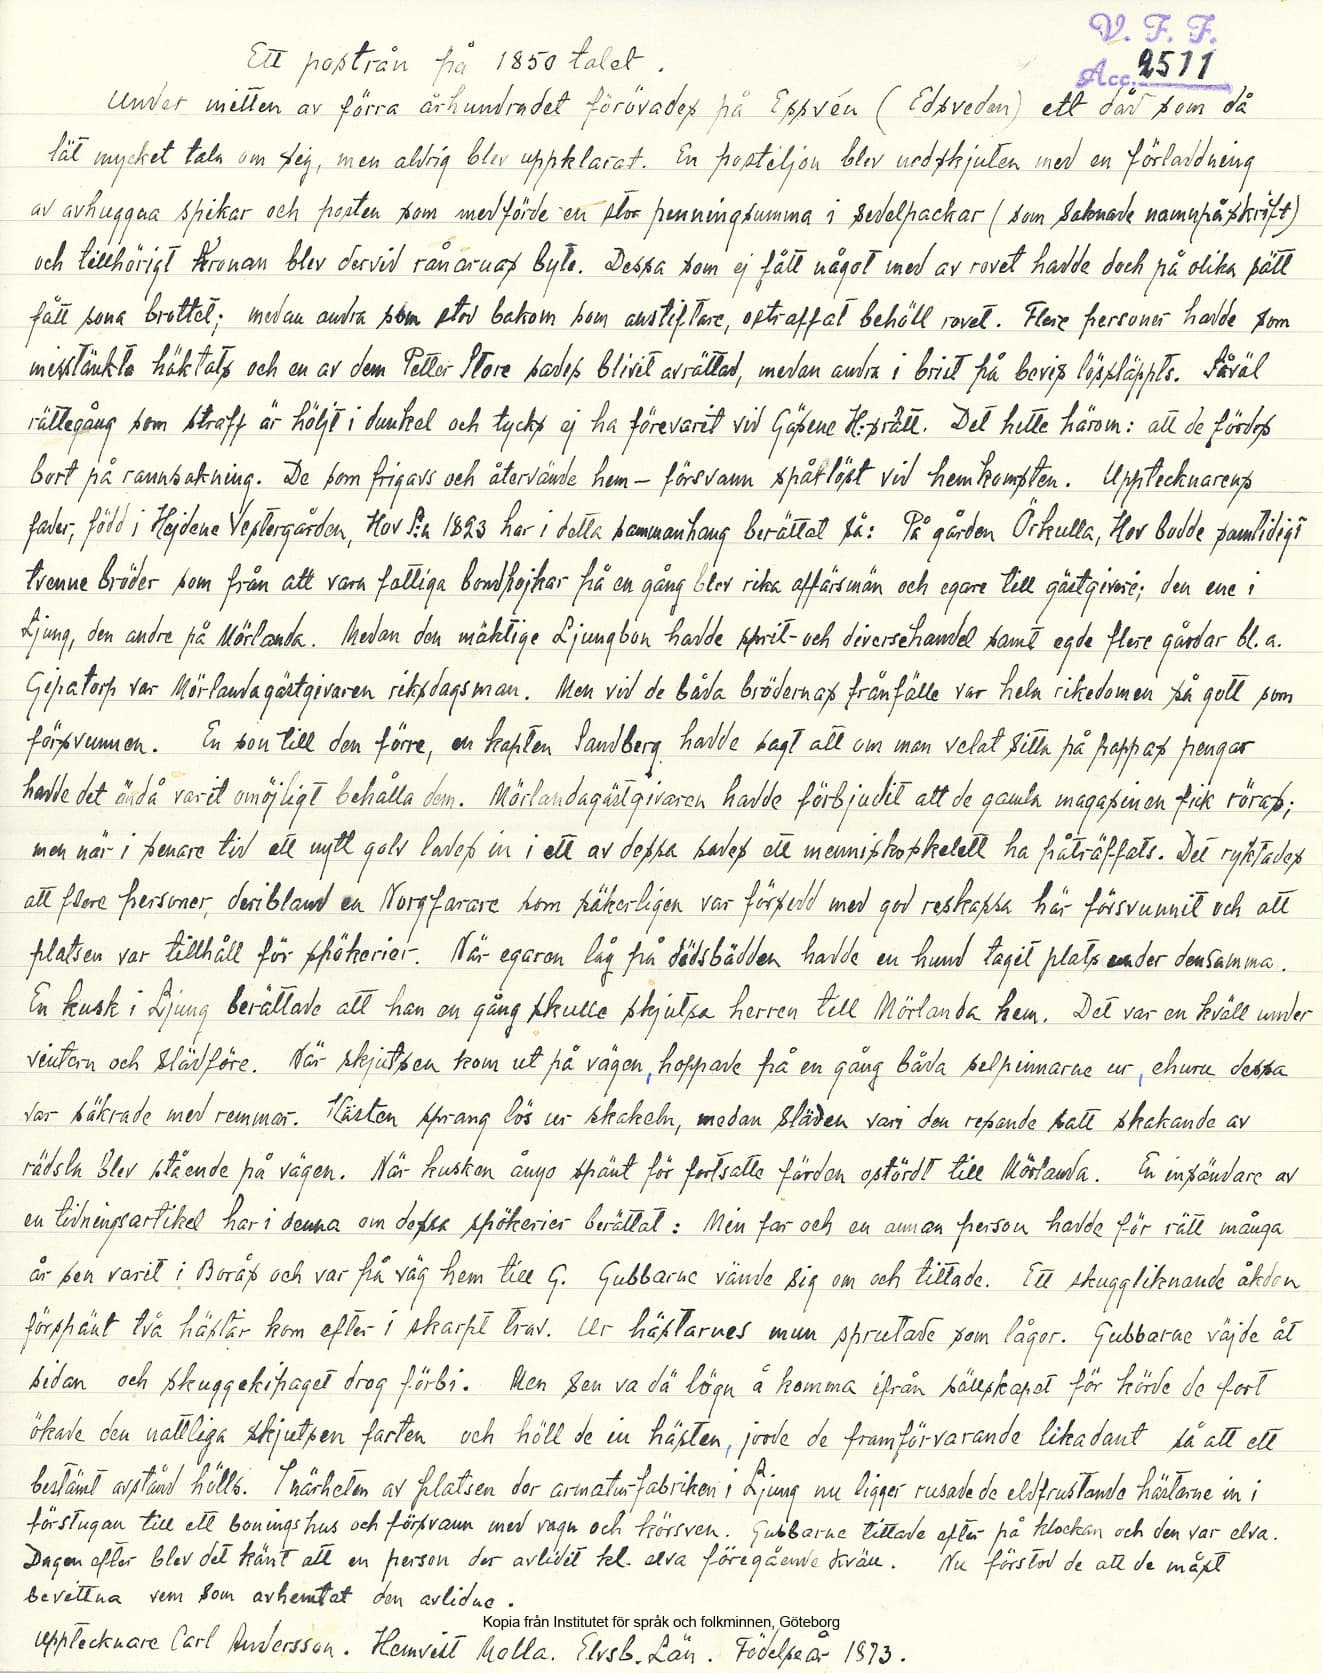 V. F. F.
Acc. 2511
Ett postrån på 1850 talet.
Under mitten av förra århundradet förövades på Essvén (Edsveden) ett dåd som då
lät mycket tala om sig, men aldrig blev uppklarat. En postiljon blev nedskjuten med en förladdning
av avhuggna spikar och posten som medförde en stor penningsumma i sedelpackar (som saknade namnpåskrift)
och tillhörigt Kronan blev dervid rånarnas byte. Dessa som ej fått något med av rovet hadde doch på olika sätt
fått sona brottet; medan andra som stod bakom som anstiftare, ostraffat behöll rovet. Flere personer hadde som
misstänkta häktats och en av dem Petter Store sades blivit avrättad, medan andra i brist på bevis lössläppts. Såväl
rättegång som straff är höljt i dunkel och tycks ej ha förevarit vid Gäsene H:srätt. Det hette härom: att de fördes
bort på rannsakning. De som frigavs och återvände hem – försvann spårlöst vid hemkomsten. Upptecknarens
fader, född i Hejdene Vestergården, Hov S:n 1823 har i detta sammanhang berättat så: På gården Örkulla, Hov bodde samtidigt
tvenne bröder som från att vara fattiga bondpojkar på en gång blev rika affärsmän och egare till gästgiveri; den ene i
Ljung, den andre på Mörlanda. Medan den mäktige Ljungbon hadde sprit- och diversehandel samt egde flere gårdar bl. a.
Gipatorp var Mörlandagästgivaren riksdagsman. Men vid de båda brödernas frånfälle var hela rikedomen så gott som
försvunnen. En son till den förre, en kapten Sandberg hadde sagt att om man velat sitta på pappas pengar
hadde det ändå varit omöjligt behålla dem. Mörlandagästgivaren hadde förbjudit att de gamla magasinen fick röras;
men när i senare tid ett nytt golv lades in i ett av dessa sades ett menniskoskelett ha påträffats. Det ryktades
att flere personer, deribland en Norgfarare som säkerligen var försedd med god reskassa här försvunnit och att
platsen var tillhåll för spökerier. När egaren låg på dödsbädden hadde en hund tagit plats under densamma.
En kusk i Ljung berättade att han en gång skulle skjutsa herren till Mörlanda hem. Det var en kväll under
vintern och slädföre. När skjutsen kom ut på vägen, hoppade på en gång båda selpinnarne ur, ehuru dessa
var säkrade med remmar. Hästen sprang lös ur skakeln, medan släden vari den resande satt skakande av
rädsla blev stående på vägen. När kusken ånyo spänt för fortsatte färden ostördt till Mörlanda. En insändare av
en tidningsartikel har i denna om dessa spökerier berättat: Min far och en annan person hadde för rätt många
år sen varit i Borås och var på väg hem till G. Gubbarne vände sig om och tittade. Ett skuggliknande åkdon
förspänt två hästar kom efter i skarpt trav. Ur hästarnes mun sprutade som lågor. Gubbarne väjde åt
sidan och skuggekipaget drog förbi. Men sen va dä lögn å komma ifrån sällskapet för körde de fort
ökade den nattliga skjutsen farten och höll de in hästen, jorde de framförvarande likadant så att ett
bestämt avstånd hölls. I närheten av platsen der armaturfabriken i Ljung nu ligger rusade de eldfrustande hästarne in i
förstugan till ett boningshus och försvann med vagn och körsven. Gubbarne tittade efter på klockan och den var elva.
Dagen efter blev det känt att en person der avlidit kl. elva föregående kväll. Nu förstod de att de måst
bevittna vem som avhemtat den avlidne.
Kopia från Institutet för språk och folkminnen, Göteborg
Upptecknare Carl Andersson. Hemvist Molla. Elvsb. Län. Födelseår 1873.